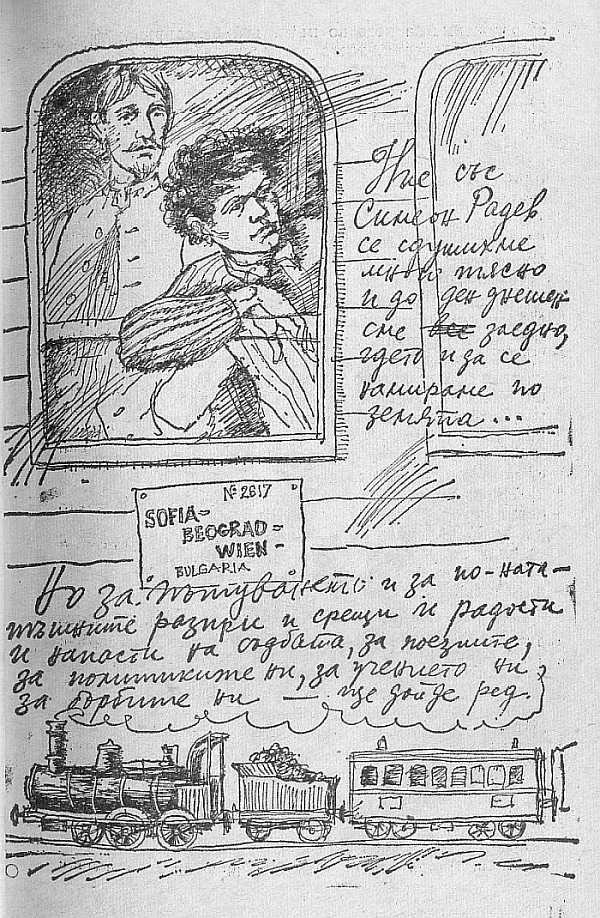 Ние със
Симеон Радев
се сдушихме
много тясно
и до ден днешен
сме все заедно,
гдето и за се
намираме по
земята...
№ 2617
SOFIA-
BEOGRAD-
WIEN-
BULGARIA
Но за пътуването и за по-ната-
тъшните разпри и срещи и радости
и напасти на съдбата, за поезиите,
за политиките ни, за учението ни,
за борбите ни — ще дойде ред.